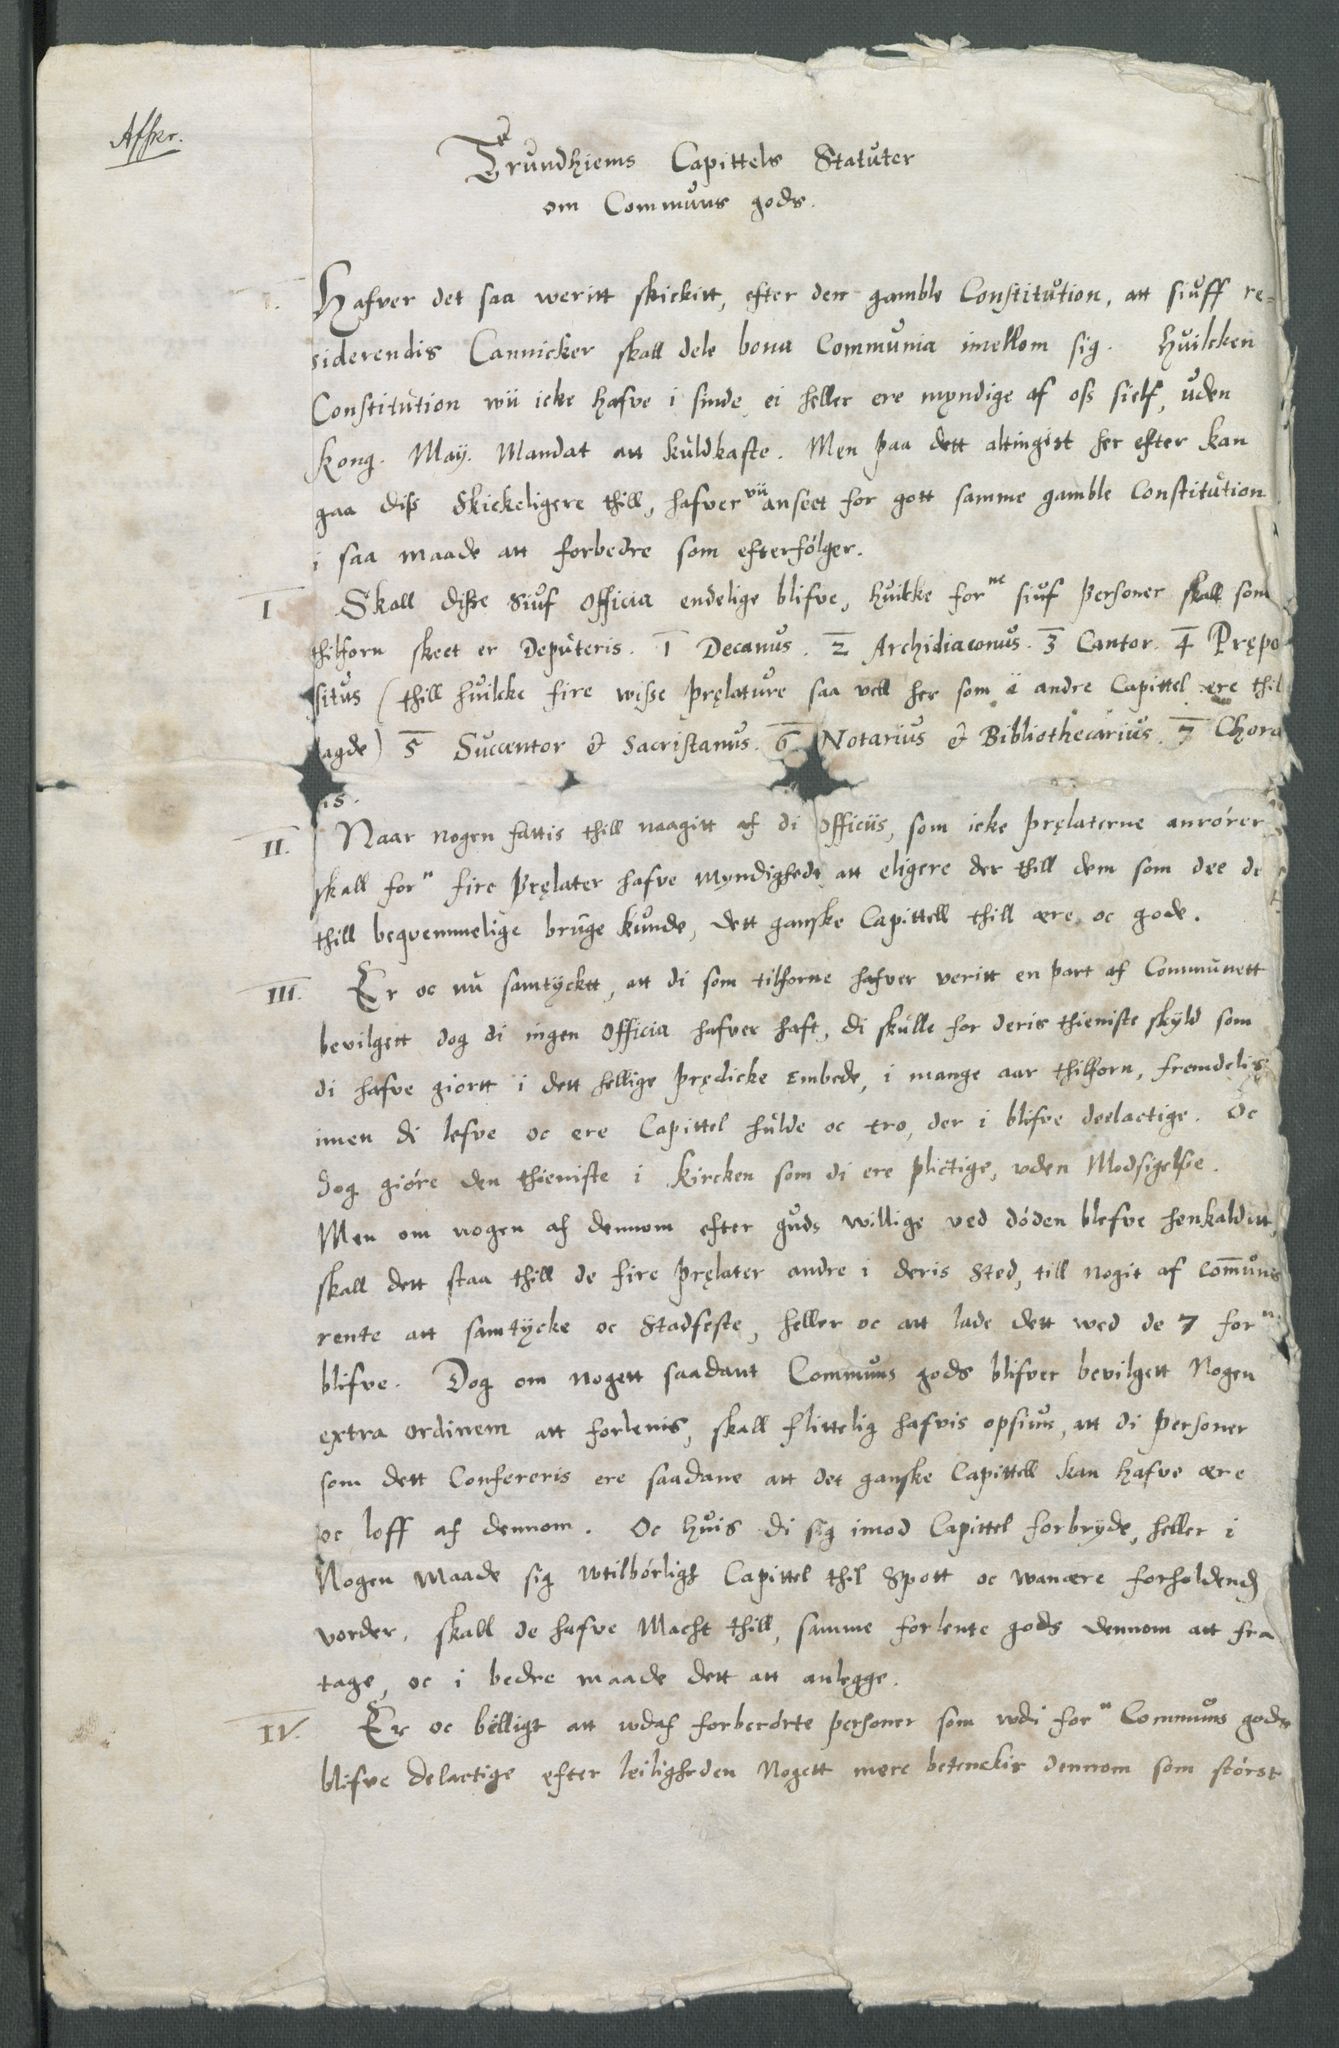 Afskr.
Trundhiems Capittels Statuter
om Communs gods.
Hafver det saa weritt skickitt, efter den gamble Constitution, att siuff re-
siderendis Cannicker skall dele bona Communia imellom sig. Huilcken
Constitution wii icke hafve i sinde, ei heller ere myndige af oss sielf, uden
Kong. May. Mandat att kuldkaste. Men paa dett altingist her efter kan
gaa diss Skickeligere thill, hafver wii anseet for gott samme gamble Constitution
i saa maade att forbedre som efterfólger.
I Skall disse Siuf Officia endelige blifve, huilke forne siuf Personer skall som
thilforn skeet er Deputeris. 1 Decanus. 2 Archidiaconus. 3 Cantor. 4 Prępo
situs (thill huilcke fire wisse Pręlature saa vell her som i andre Capittel ere thil
lagde) 5 Succentor & Sacristanus. 6 Notarius & Bibliothecarius. 7 Chora
lis.
II. Naar nogen fattis thill naagitt af di Officiis, som icke Pręlaterne anrórer
skall forn fire Pręlater hafve Myndighedt att eligere der thill dem som dee de
thill beqvemmelige bruge kunde, dett ganske Capittell thill ære oc gode.
III. Er oc nu samtycktt, att di som tilforne hafver veritt en part af Communett
bevilgett dog di ingen Officia hafver haft, di skulle for deris thieniste skyld som
di hafve giortt i dett hellige Prędicke Embede, i mange aar thilforn, fremdelis
imen di lefve oc ere Capittel hulde oc tro, der i blifve deelactige. Oc
dog gióre den thieniste i Kircken som di ere plictige, uden Modsigelse.
Men om nogen af dennom efter guds willige ved dóden blefve henkalditt,
skall dett staa thill de fire Pręlater andre i deris Sted, till nogit af Communs
rente att samtycke oc Stadfeste, heller oc att lade dett wed de 7 forn
blifve. Dog om nogett saadant Communs gods blifver bevilgett Nogen
extra ordinem att forlenis, skall flittelig hafvis opsiun, att di Personer
som dett Confereris ere saadane att det ganske Capittell kan hafve ære
oc loff af dennom. Oc huis di sig imod Capittel forbryde, heller i
Nogen maade sig wtilbórligt Capittel thil Spott oc wanære forholdend
vorder, skall de hafve Macht thill, samme forlente gods dennom att fra
tage, oc i bedre maade dett att anlegge.
IV. Er oc billigt att udaf forberórte personer som udi forn Communs gods
blifve delactige efter leiligheden Nogett mere betenckis dennom som stórst